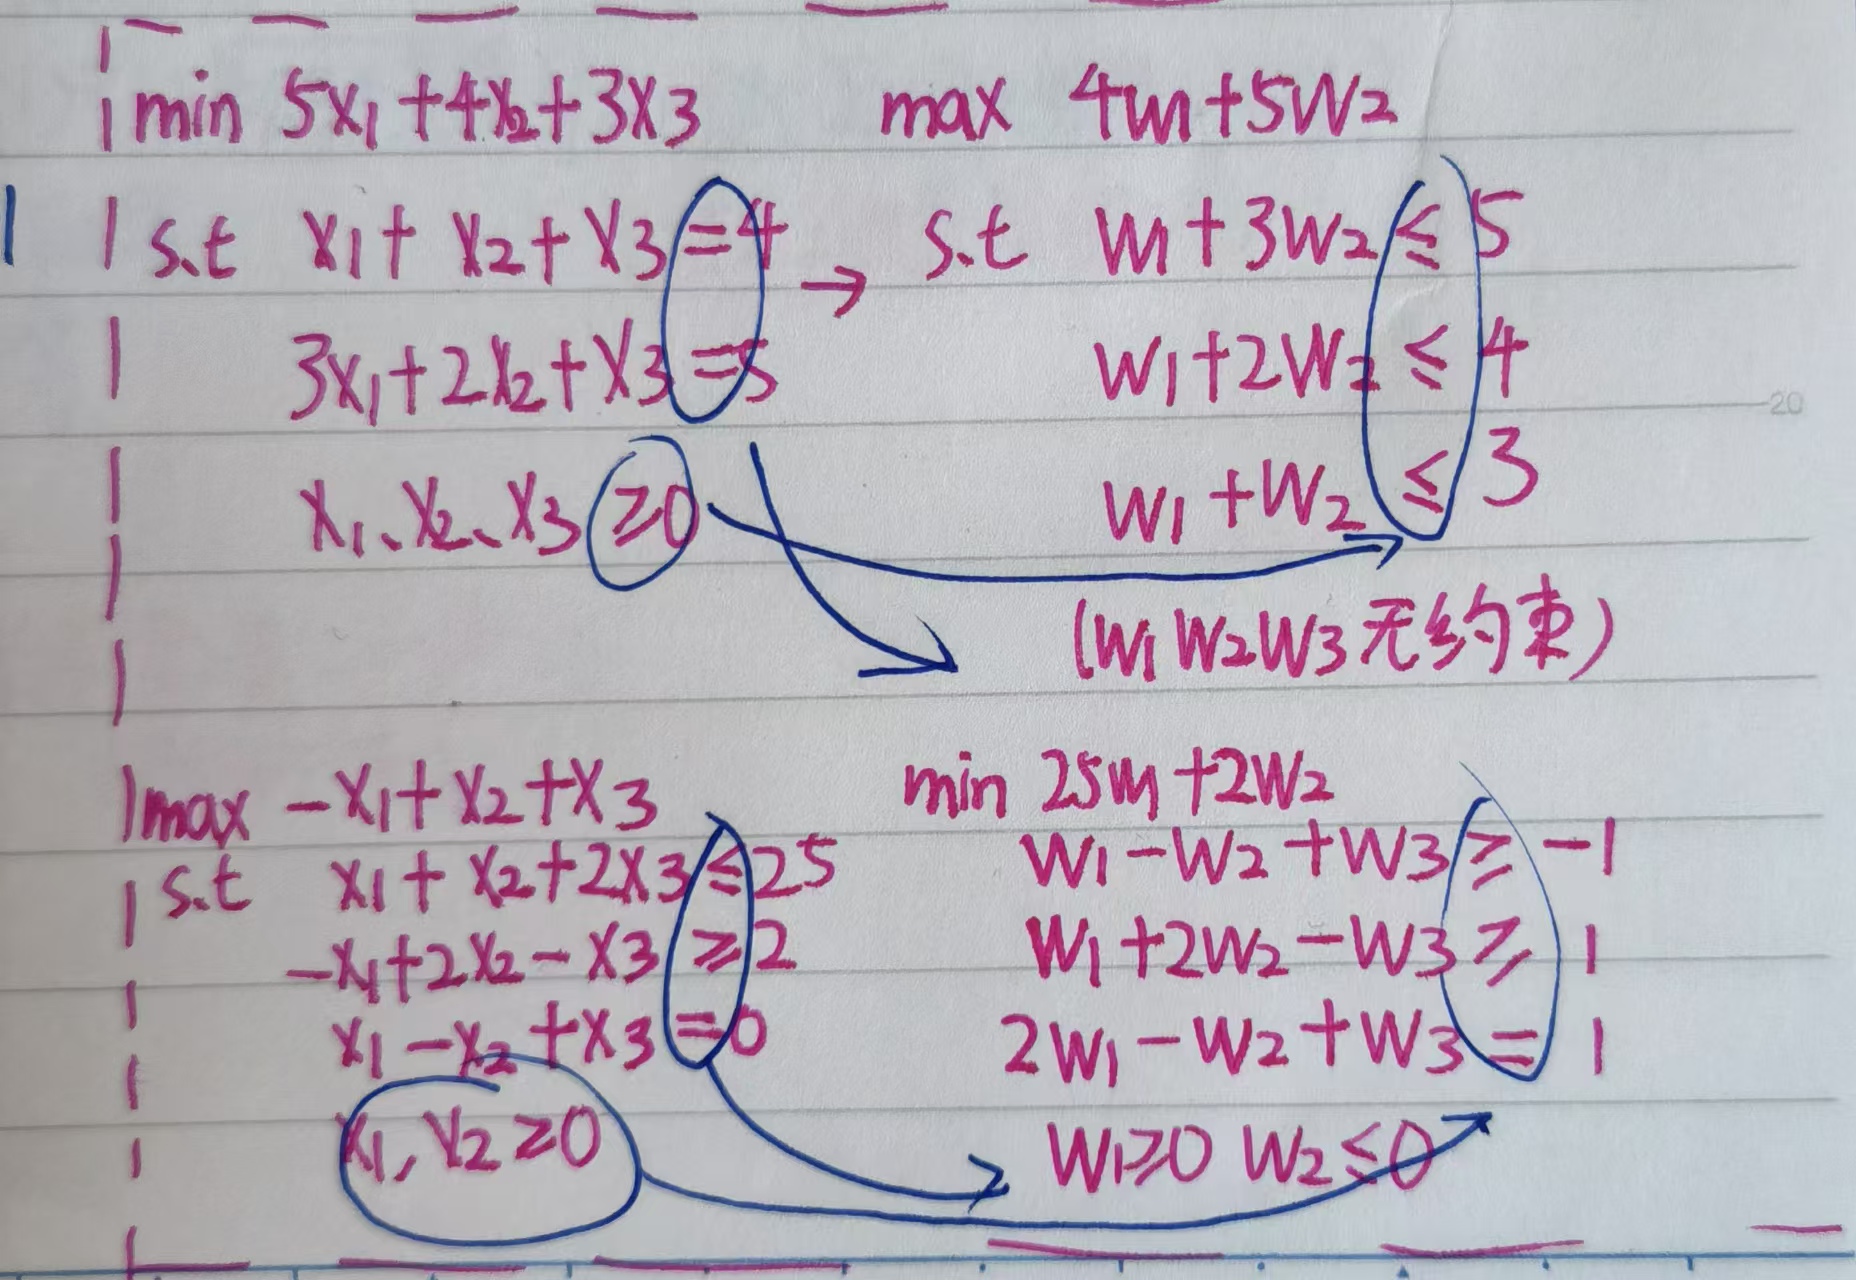 min 5x1+4x2+3x3
s.t x1+x2+x3=4
3x1+2x2+x3=5
x1、x2、x3≥0
→
max 4w1+5w2
s.t w1+3w2≤5
w1+2w2≤4
w1+w2≤3
(w1w2w3无约束)
20
max -x1+x2+x3
s.t x1+x2+2x3≤25
-x1+2x2-x3≥2
x1-x2+x3=0
x1,x2≥0
min 25w1+2w2
w1-w2+w3≥-1
w1+2w2-w3≥1
2w1-w2+w3=1
w1≥0 w2≤0